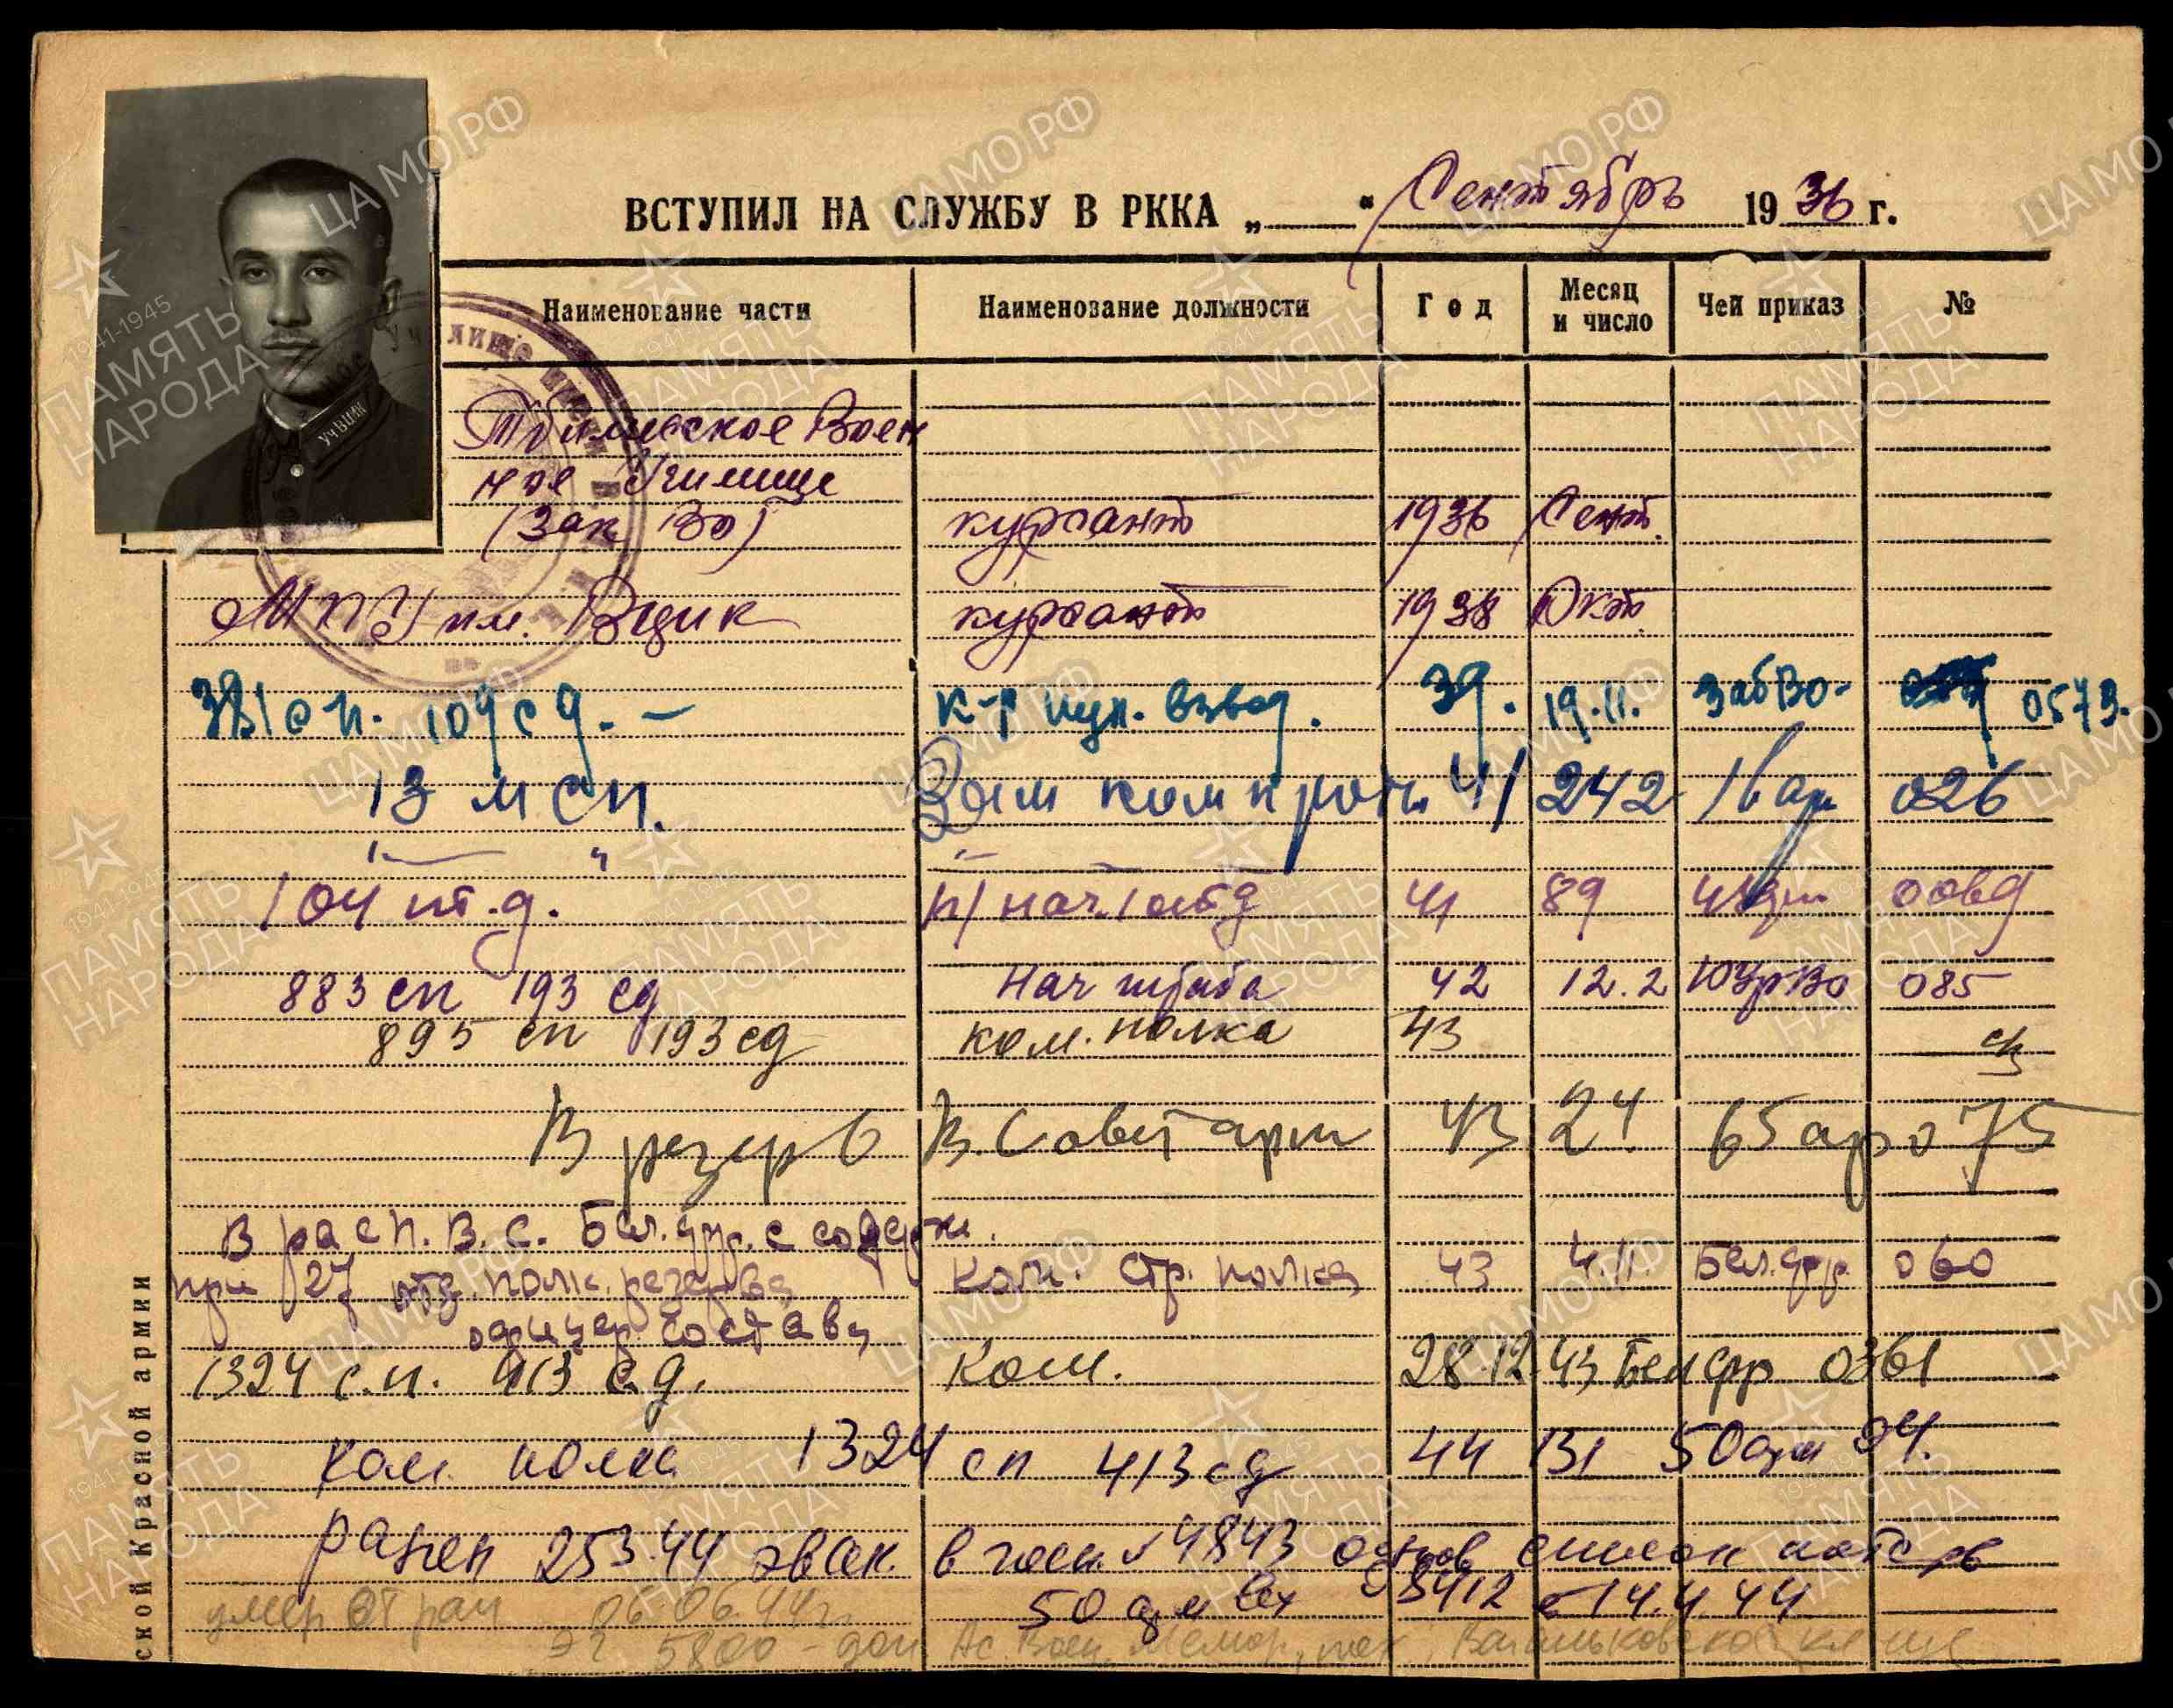 ВСТУПИЛ НА СЛУЖБУ В РККА „ “ Сентябрь 1936 г.
Наименование части Наименование должности Год Месяц и число Чей приказ №
Тбилисское Воен
ное Училище
(Зак ВО) курсант 1936 Сент.
МПУ им. ВЦИК курсант 1938 Окт.
381 сп. 109 сд. – к-р пул. взвод. 39. 19.11. ЗабВО- 0573.
13 мсп. Зам ком роты 41 242 16 ар 026
104 т.д. п/нач. 1 отд 41 89
883 сп 193 сд Нач штаба 42 12.2 ЮурВО 085
895 сп 193 сд ком. полка 43
В резерв В. Совет арм 43 24 65 ар 075
В расп. В. С. Бел. фр. с содерж.
при 27 отд. полк. резерва Ком. стр. полка 43 4.11. Бел. фр. 060
офицер. состава
1324 с.п. 413 с.д. Ком. 28.12.43 Бел фр 0361
Ком. полка 1324 сп 413 сд 44 131 50 арм 04.
ранен 253.44 эвак. в госп. 4843 основ список потерь
50 арм вх 3412 с 14.4.44
умер от ран 06.06.44г.
ЭГ 5800 – доп Воен. Мемор. Ваганьковское кл-ще
ской Красной армии
УчВЦИК
ЦАМО.РФ
1941-1945
ПАМЯТЬ
НАРОДА